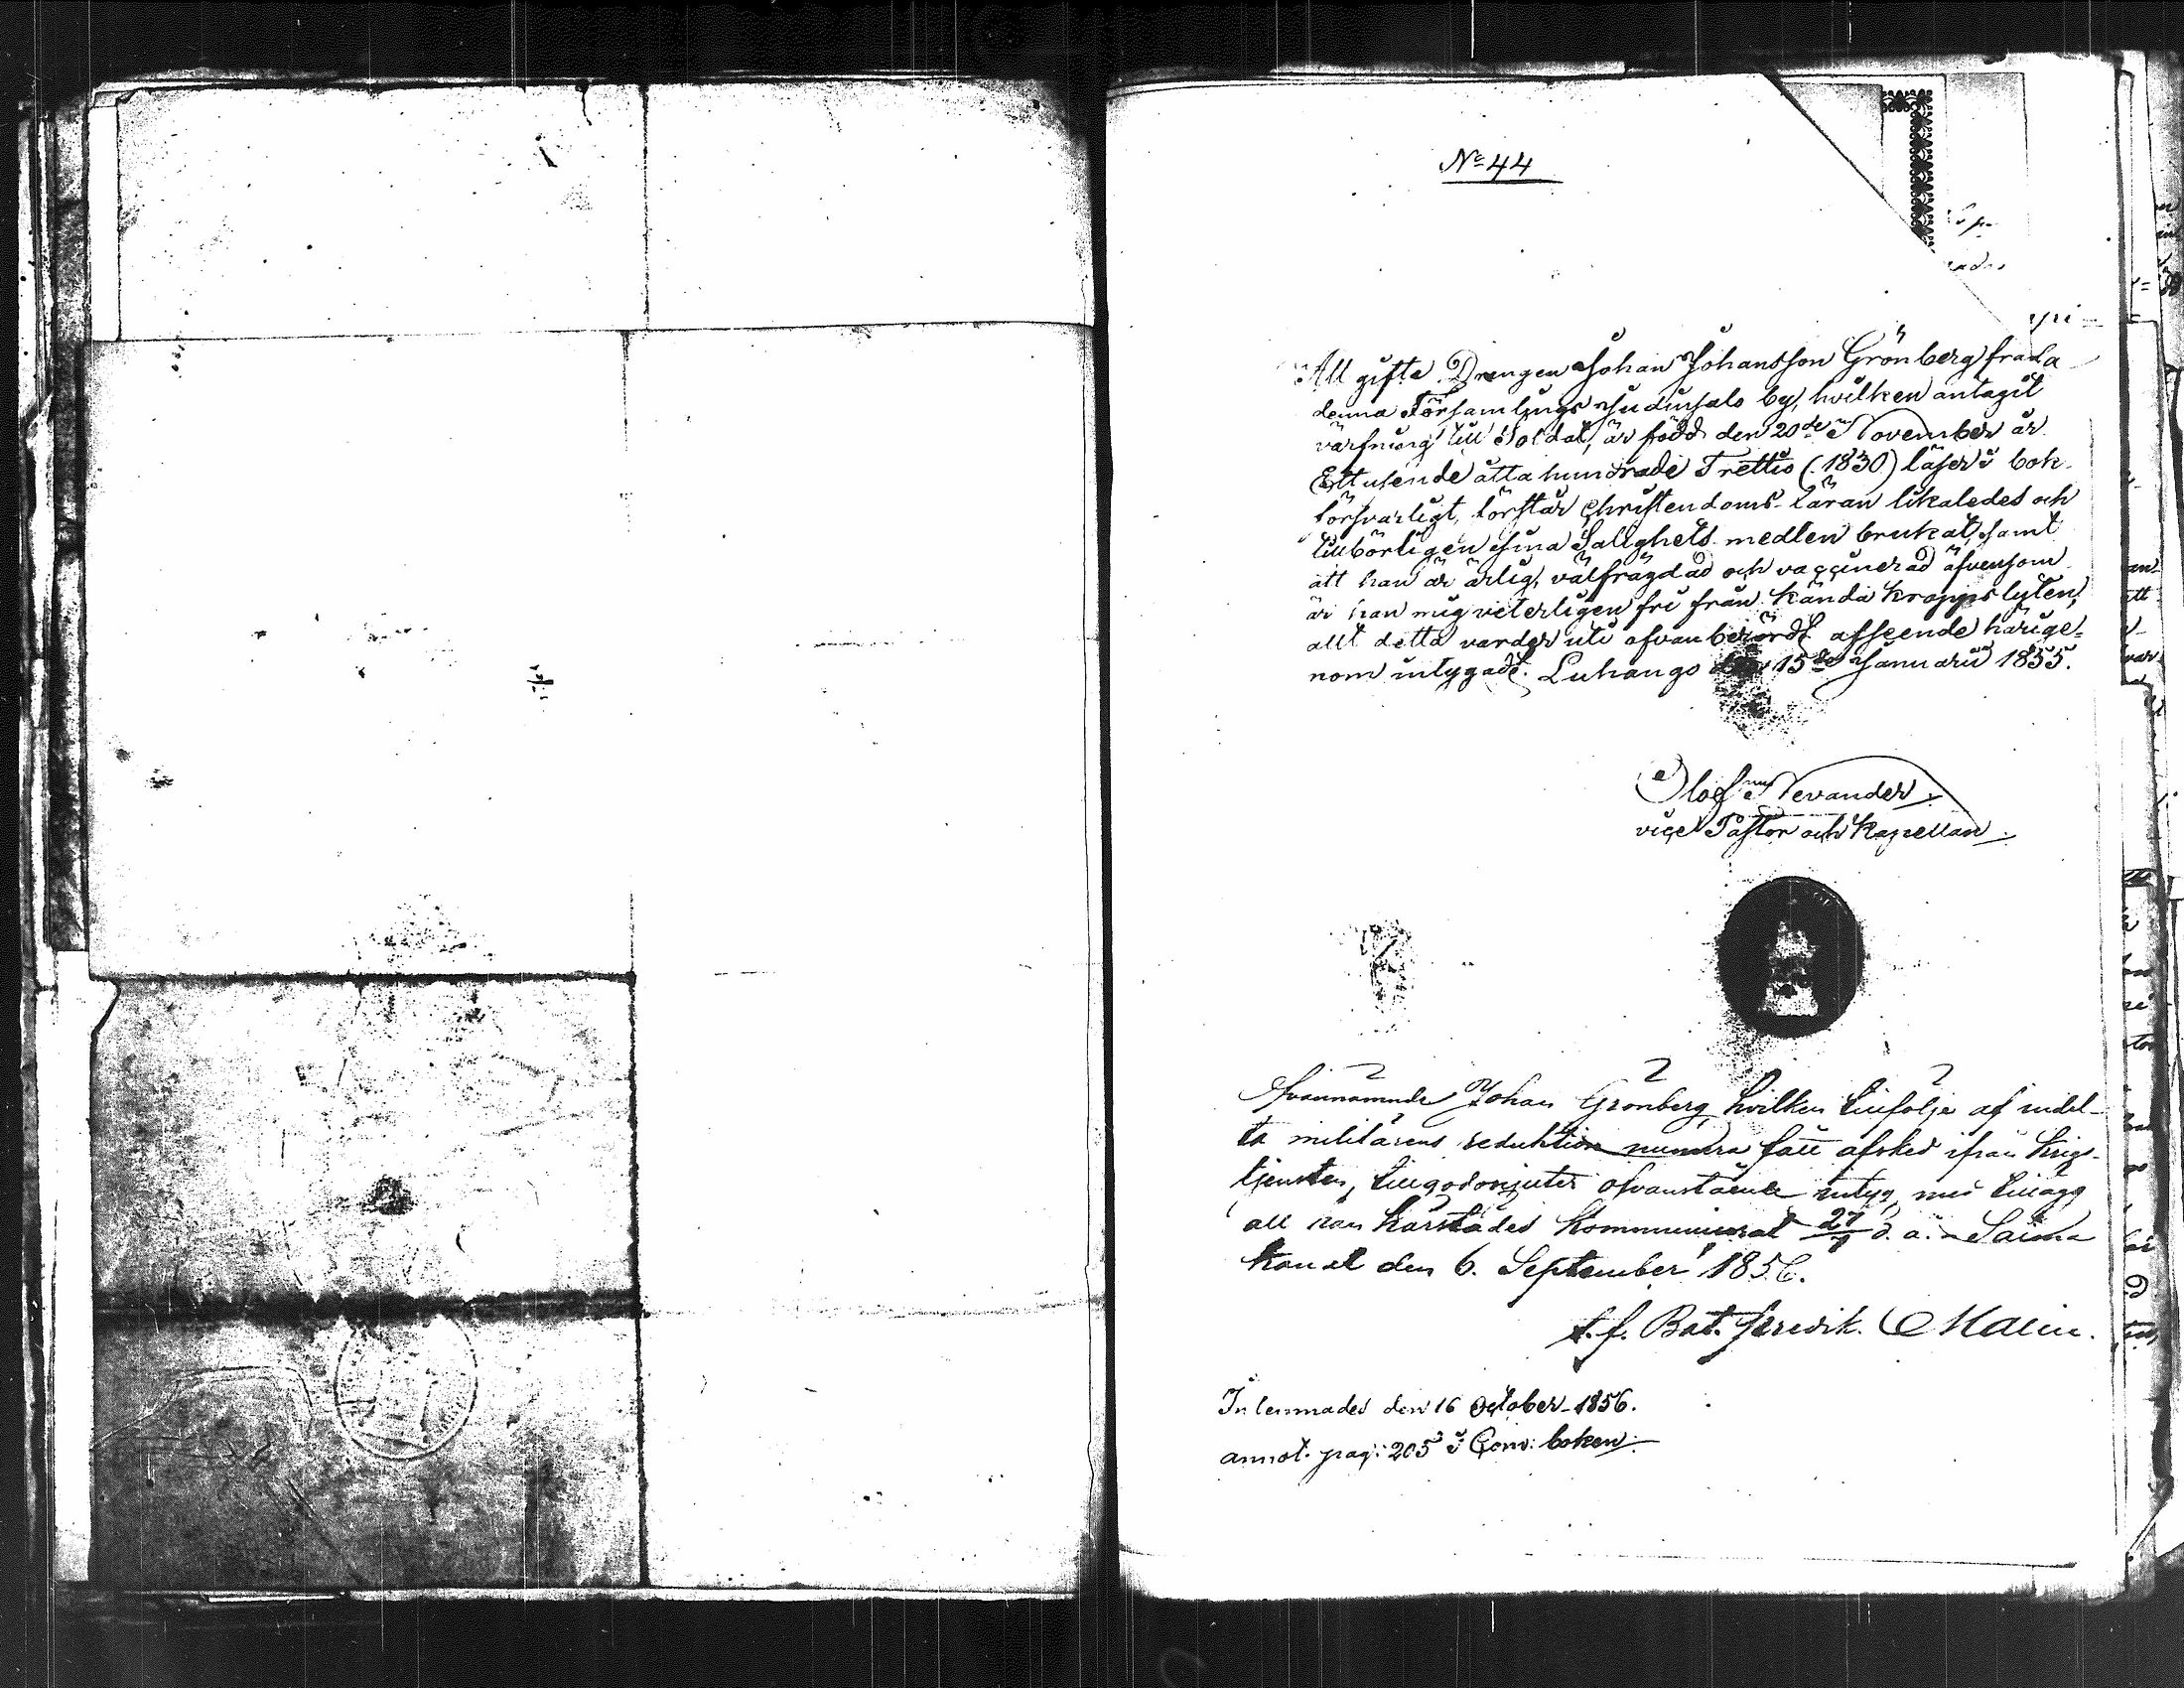 No 44
Att gifte Drengen Johan Johansson Grönberg från
denna Församlings Judinsalo by, hvilken antagit
värfning till Soldat, är född den 20de November år
Ettusende åtta hundrade Trettio (1830) läser i bok
försvarligt, förstår Christendoms-läran likaledes och
tillbörligen sina Salighets medlen brukat, samt
att han är ärlig, välfrägdad och vaccinerad äfvensom
är han mig veterligen fri från kända kroppslyten,
allt detta varder uti ofvanberördt afseende härige-
nom intygadt. Luhango den 15de Januarii 1855.
Olof Nevander
vice Pastor och Kapellan
Ofvannämnde Johan Grönberg, hvilken till följe af indel-
ta militärens reduktion numera fått afsked ifrån krigs-
tjensten, tillgodonjuter ofvanstående intyg, med tillägg
att han härstädes kommunicerat 27/7 d. å. Saima
kanal den 6. September 1856.
t.f. Bat. predik. Malin.
Inlemnades den 16 October 1856.
annot. pag: 205 i Com: boken